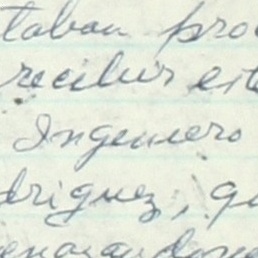 taban pro
recibir est
Ingeniero
driguez, qu